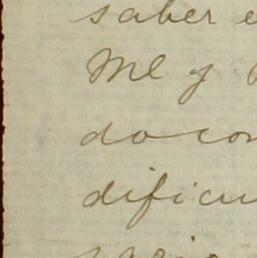 saber e
Me y
do con
dificu